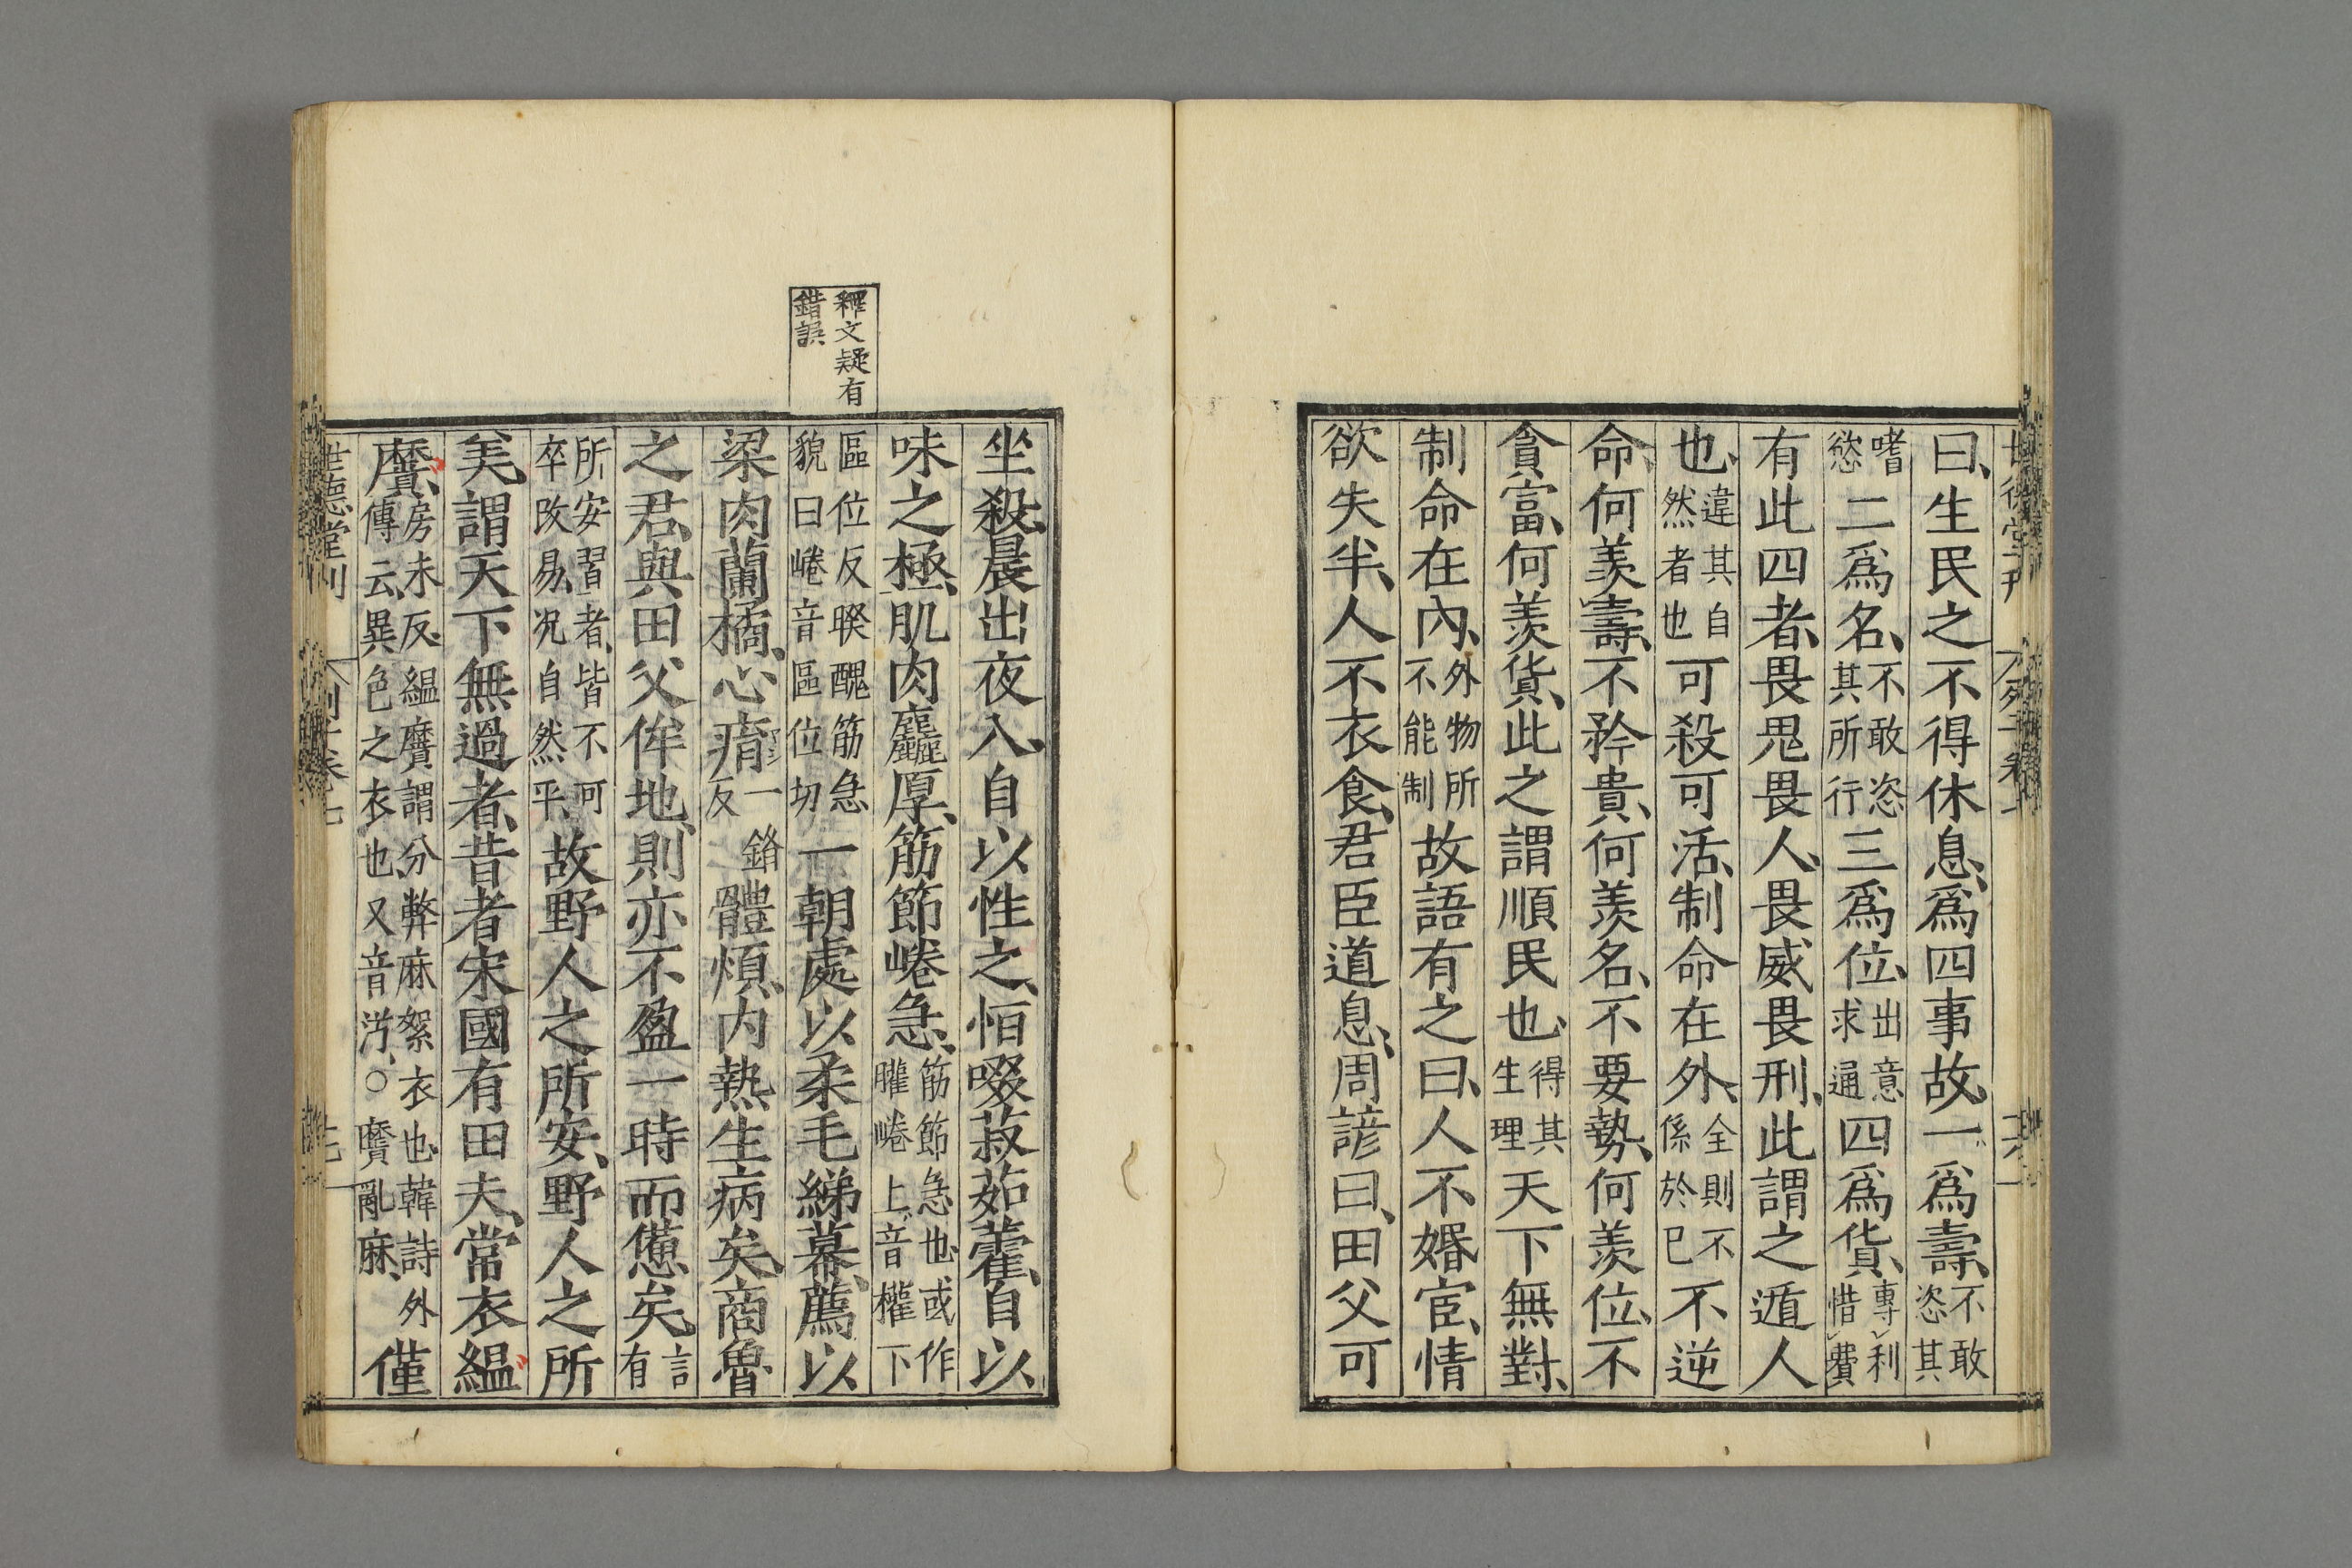 曰、生民之不得休息、爲四事故、一爲壽、不敢恣其
嗜慾二爲名、不敢恣其所行三爲位、出意求通四爲貨、專利惜費
有此四者、畏鬼畏人、畏威畏刑、此謂之遁人
也、違其自然者也可殺可活、制命在外、全則不係於己不逆
命、何羨壽、不矜貴、何羨名、不要勢、何羨位、不
貪富、何羨貨、此之謂順民也、得其生理天下無對、
制命在內、外物所不能制故語有之曰、人不婚宦、情
欲失半、人不衣食、君臣道息、周諺曰、田父可
坐殺、晨出夜入、自以性之、恒啜菽茹藿、自以
味之極、肌肉麤厚、筋節㟡急、筋節急也或作䑏㟡上音權下
區位反䁔醜筋急貌曰㟡音區位切一朝處以柔毛綈幕、薦以
粱肉蘭橘、心㾓一鋗反體煩、内熱生病矣、商魯
之君、與田父侔地、則亦不盈一時而憊矣、言有
所安習者、皆不可卒改易、况自然乎、故野人之所安、野人之所
美、謂天下無過者、昔者宋國有田夫、常衣縕
黂、房未反縕黂謂分弊麻絮衣也韓詩外傳云、異色之衣也又音汾、○黂亂麻、僅
釋文疑有
錯誤
世德堂刊
列子卷七